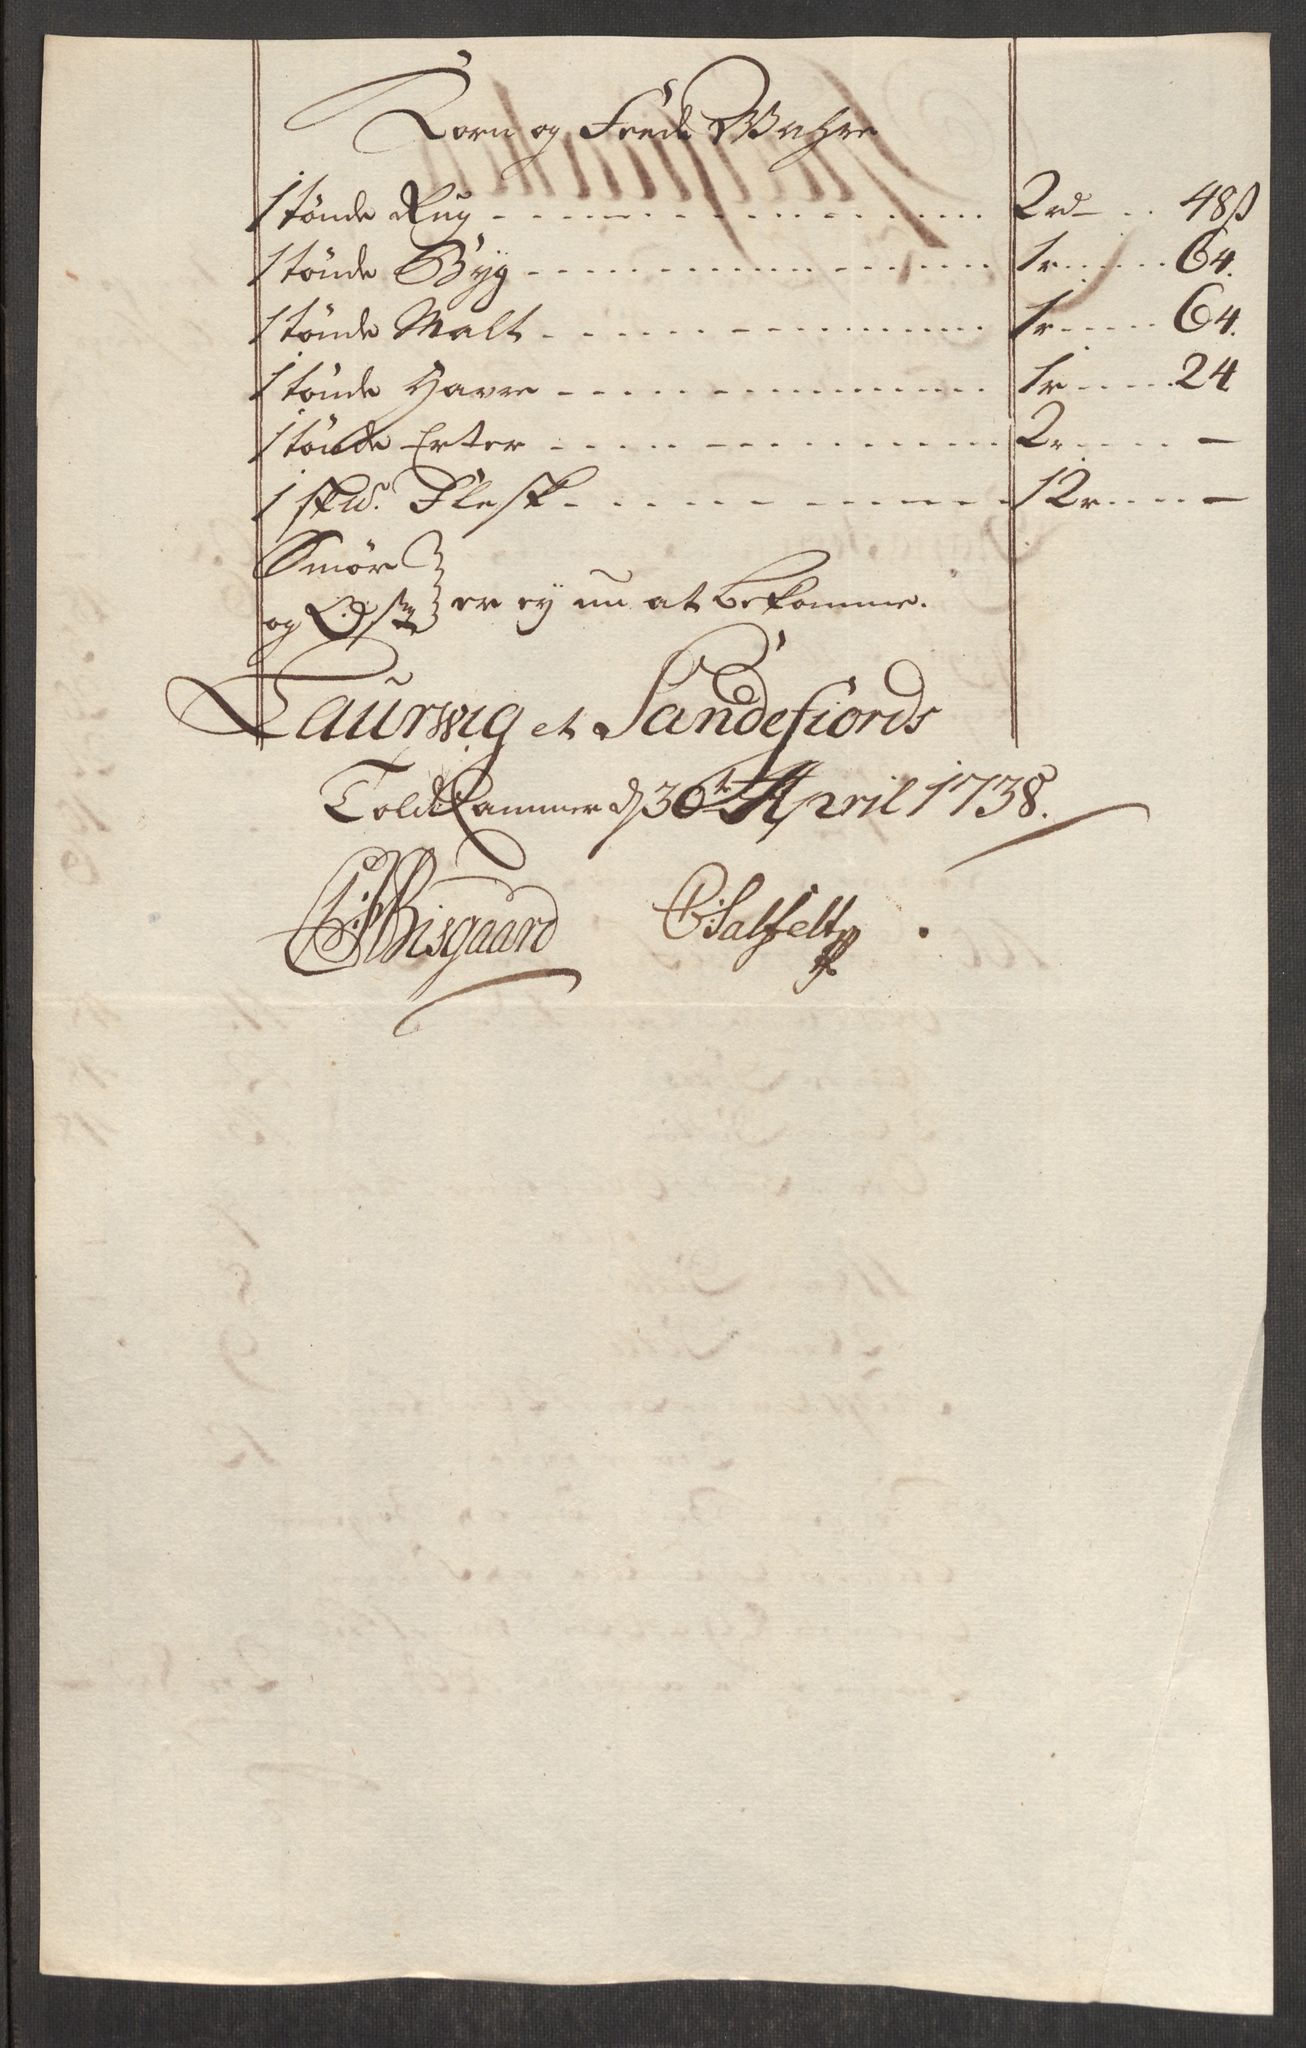 Korn og Fede Wahre
1 tönde Rug - - - - - - 2 rd - - 48 ß
1 tönde Byg - - - - - - 1 r - - - 64.
1 tönde Malt - - - - - - 1 r - - - 64.
1 tönde Havre - - - - - - 1 r - - - 24
1 tönde Erter - - - - - - 2 r - - - —
1 sk℔. Flesk - - - - - - 12 r - - - —
Smör
og Ost er ey nu at bekomme.
Laurwig et Sandefiords
Told Kammer d 30t April 1738.
Risgaard C Salfelt